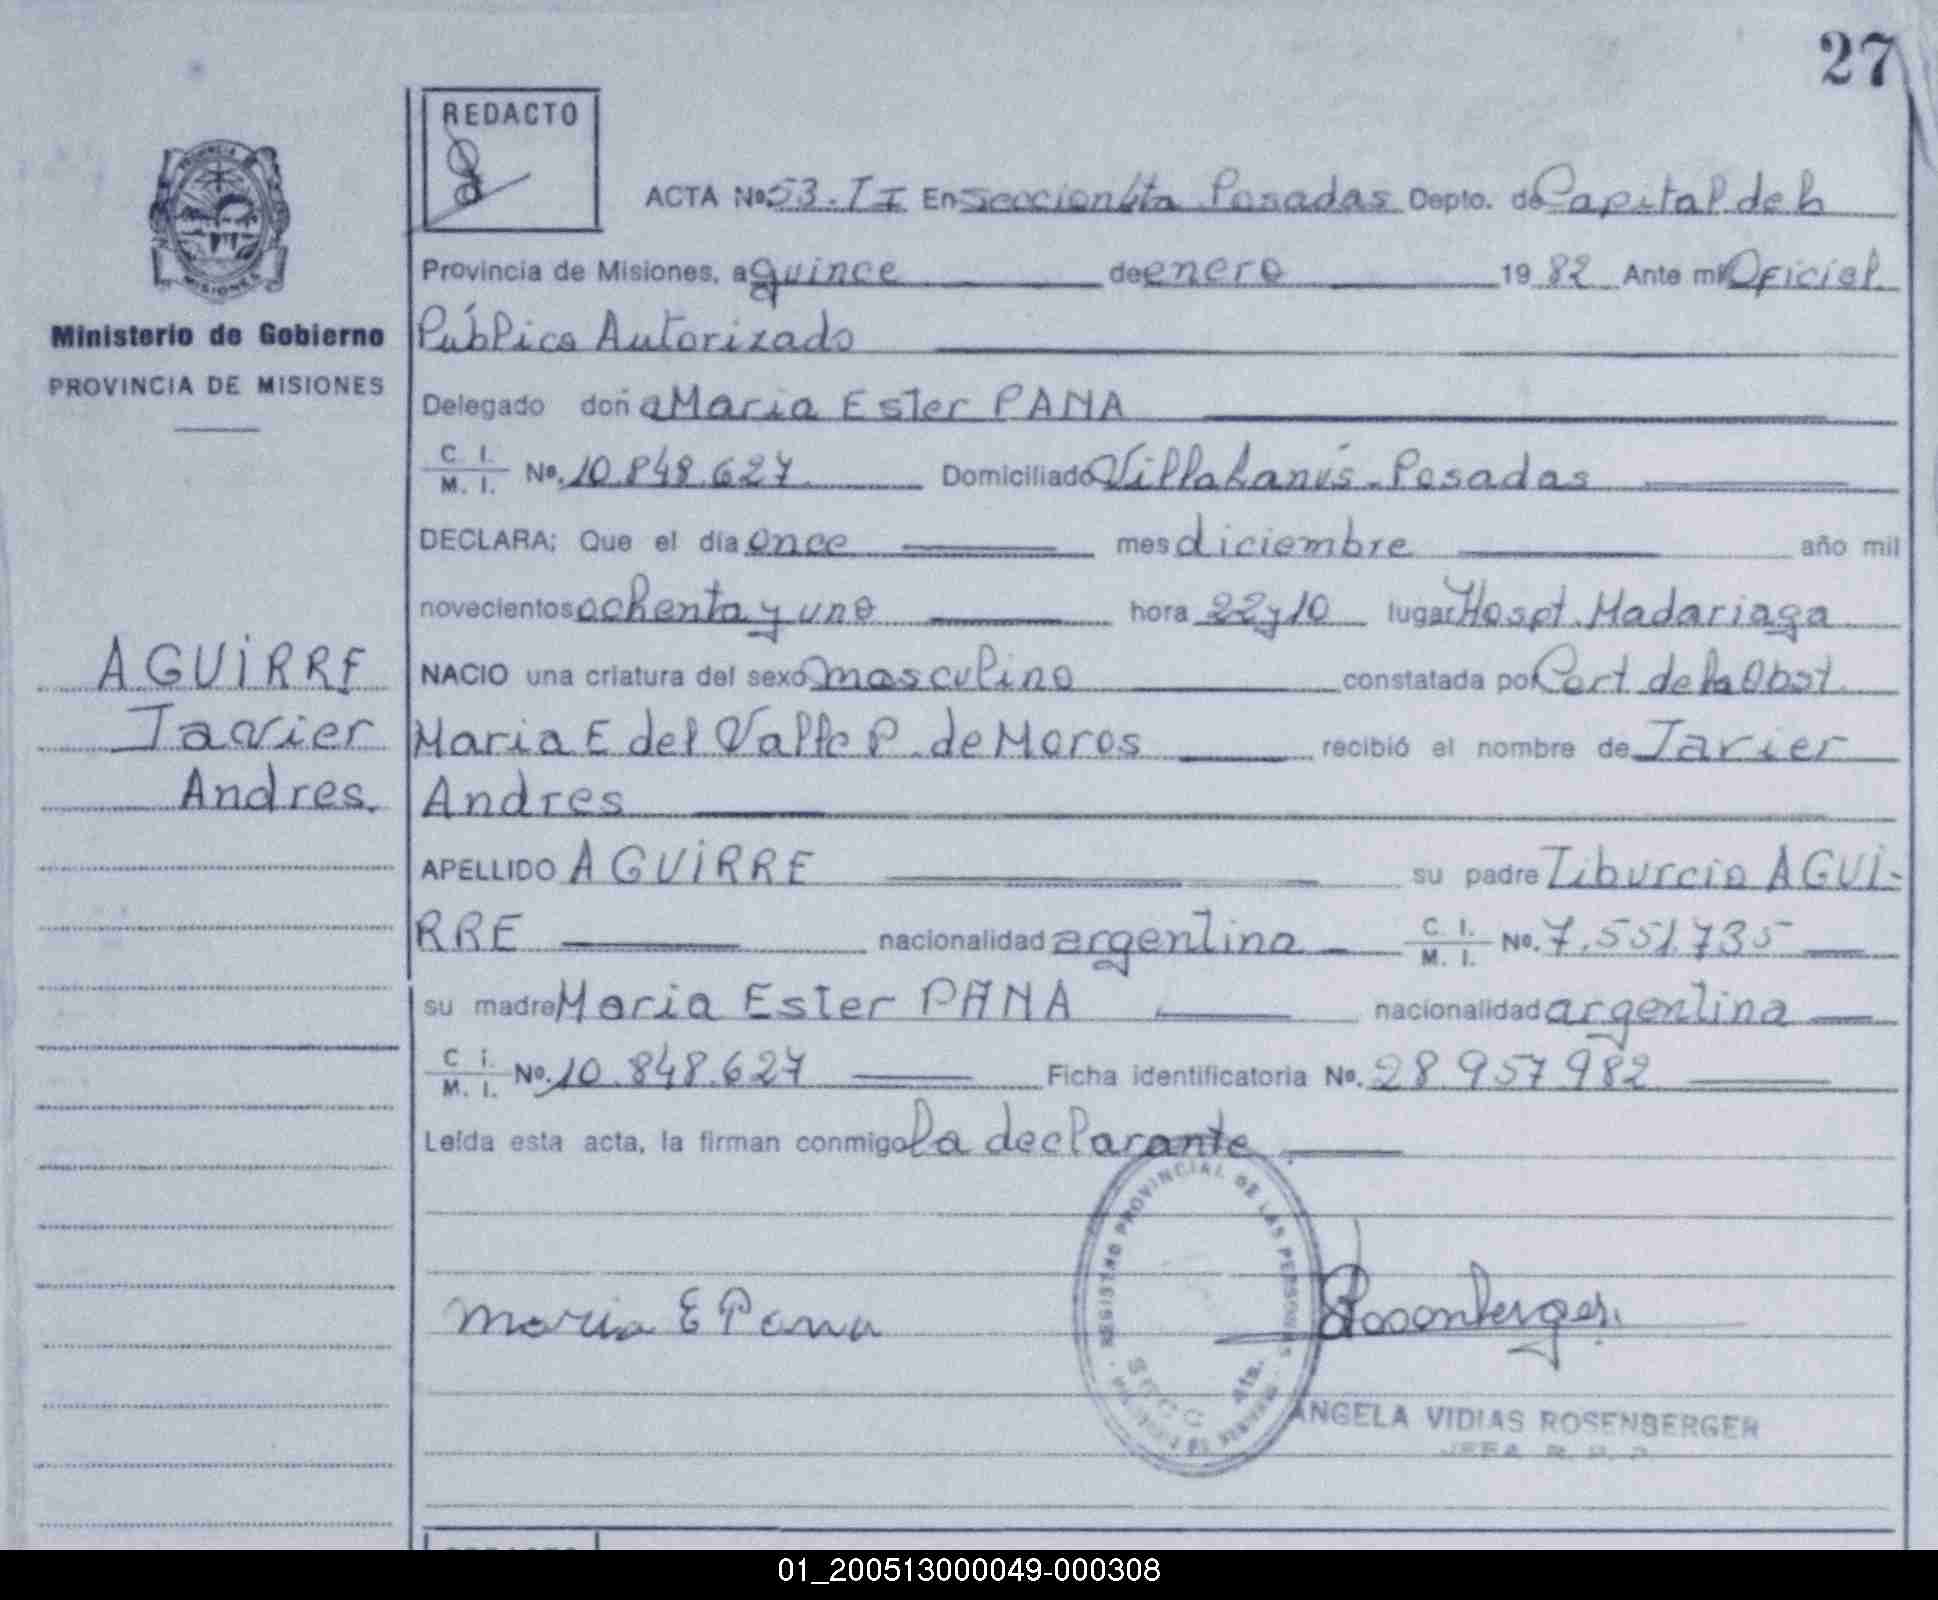 27
REDACTO
ACTA Nº 53.II En Seccion 6ta Posadas Depto. de Capital de la
Provincia de Misiones, a quince de enero 19 82 Ante mi Oficial
Público Autorizado
Ministerio de Gobierno
PROVINCIA DE MISIONES
Delegado doña Maria Ester PANA
C. I.
M. I. Nº. 10.848.627 Domiciliado Villa Lanús - Posadas
DECLARA; Que el día once mes diciembre año mil
novecientos ochenta y uno hora 22 y 10 lugar Hospt. Madariaga
NACIO una criatura del sexo masculino constatada por Cert. de la Obst.
AGUIRRE
Javier
Andres.
Maria E del Valle P. de Moros recibió el nombre de Javier
Andres
APELLIDO AGUIRRE su padre Tiburcio AGUI-
RRE nacionalidad argentina C. I.
M. I. Nº. 7.551.735
su madre Maria Ester PANA nacionalidad argentina
C i.
M. I. Nº. 10.848.627 Ficha identificatoria Nº. 28.957.982
Leída esta acta, la firman conmigo la declarante
REGISTRO PROVINCIAL DE LAS PERSONAS
SECC 6ta.
Maria E Pana
Rosenberger
ANGELA VIDIAS ROSENBERGER
JEFA R. P. P.
PROVINCIA
MISIONES
01_200513000049-000308